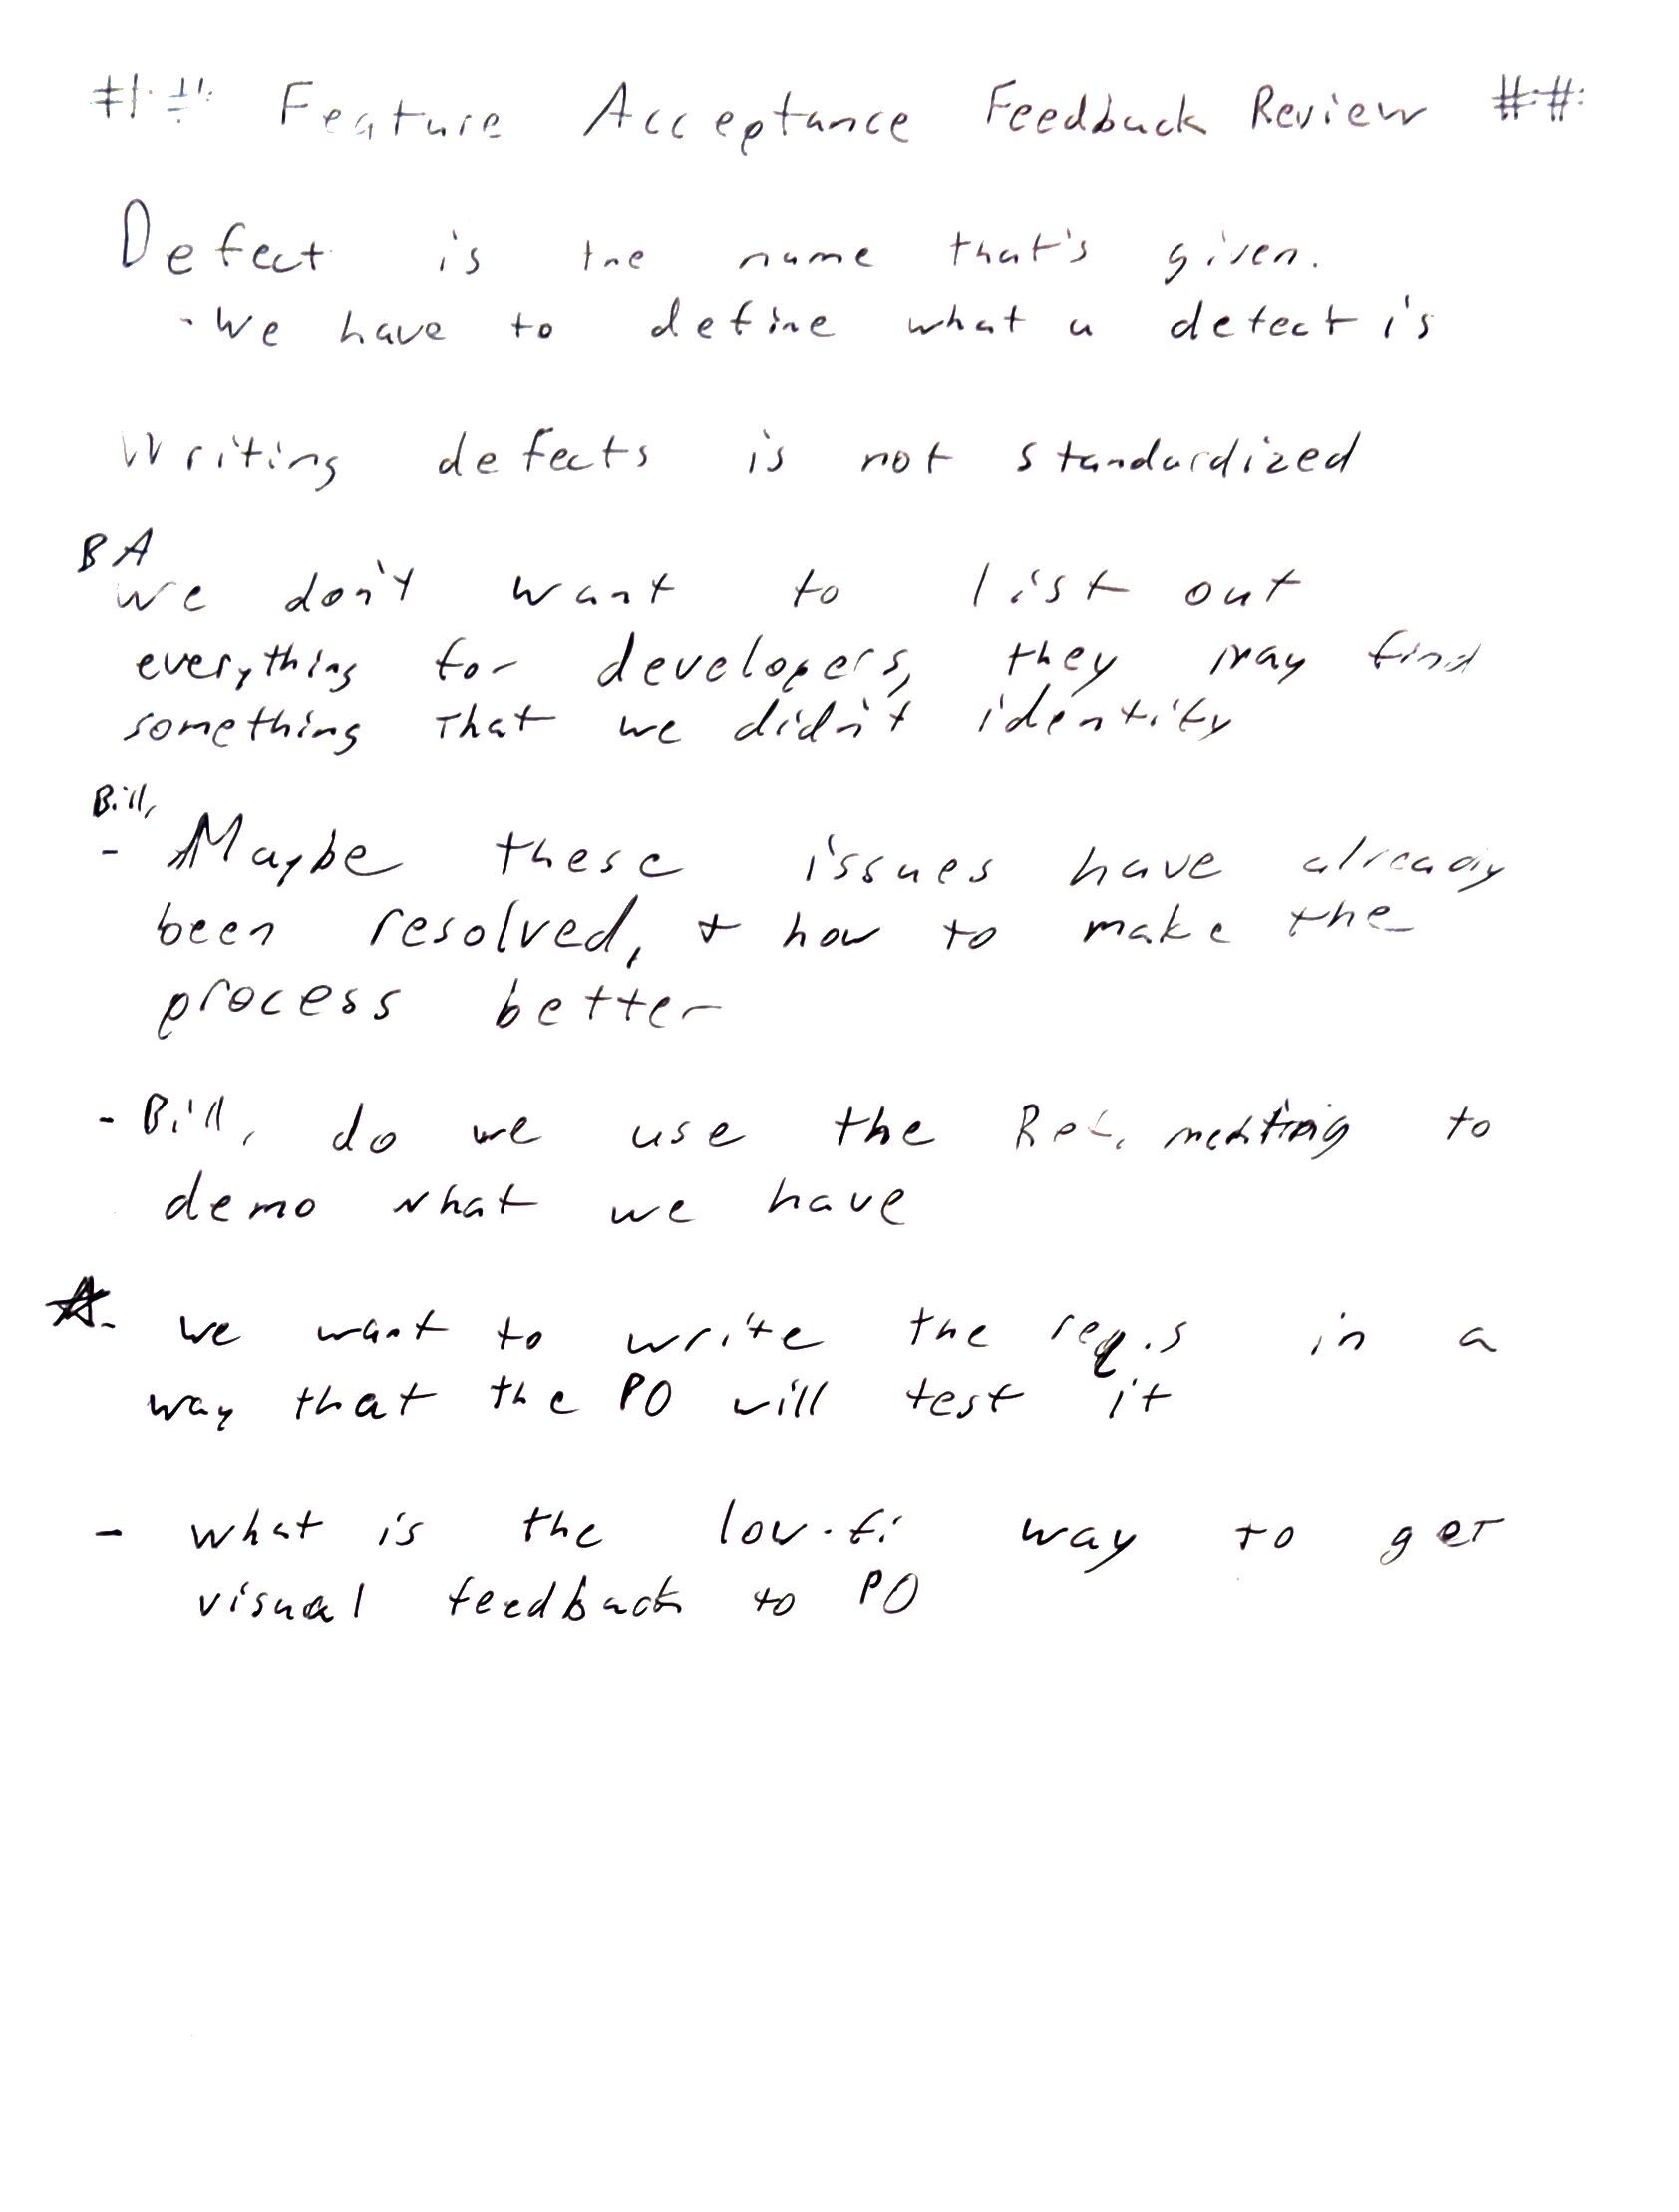 ## Feature Acceptance Feedback Review ##
Defect is the name that's given.
- We have to define what a defect is
Writing defects is not standardized
BA
we don't want to list out
everything for developers, they may find
something that we didn't identify
Bill,
- Maybe these issues have already
been resolved, + how to make the
process better
- Bill, do we use the Ref. meeting to
demo what we have
☆- we want to write the req.s in a
way that the PO will test it
- what is the low-fi way to get
visual feedback to PO